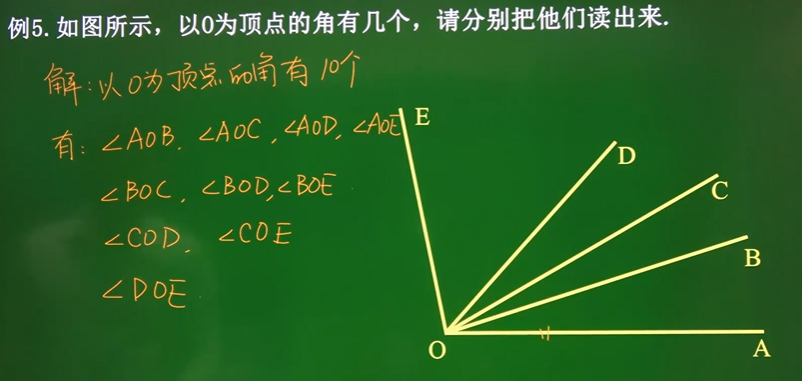 例5.如图所示，以O为顶点的角有几个，请分别把他们读出来.
解:以O为顶点的角有10个
有: ∠AOB. ∠AOC, ∠AOD, ∠AOE
∠BOC, ∠BOD, ∠BOE
∠COD, ∠COE
∠DOE
E
D
C
B
O
A